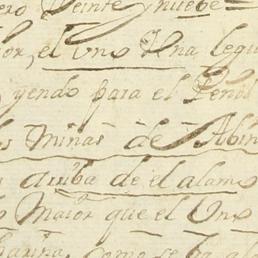 ero Veinte y nuebe =
or, el Uno Una legu
yendo para el Peñol
s Minas de Sabin
arriba de el alamo
o Maior que el Uno
como se ba